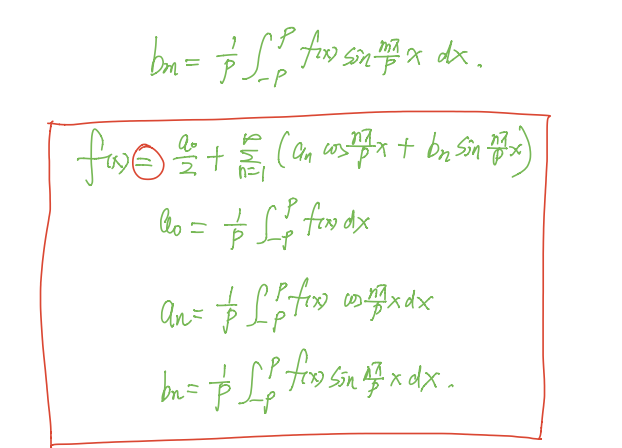 b_m = 1/p ∫_{-p}^{p} f(x) sin mπ/p x dx.
f(x) = a_0/2 + ∑_{n=1}^{∞} (a_n cos nπ/p x + b_n sin nπ/p x)
a_0 = 1/p ∫_{-p}^{p} f(x) dx
a_n = 1/p ∫_{-p}^{p} f(x) cos nπ/p x dx
b_n = 1/p ∫_{-p}^{p} f(x) sin nπ/p x dx.